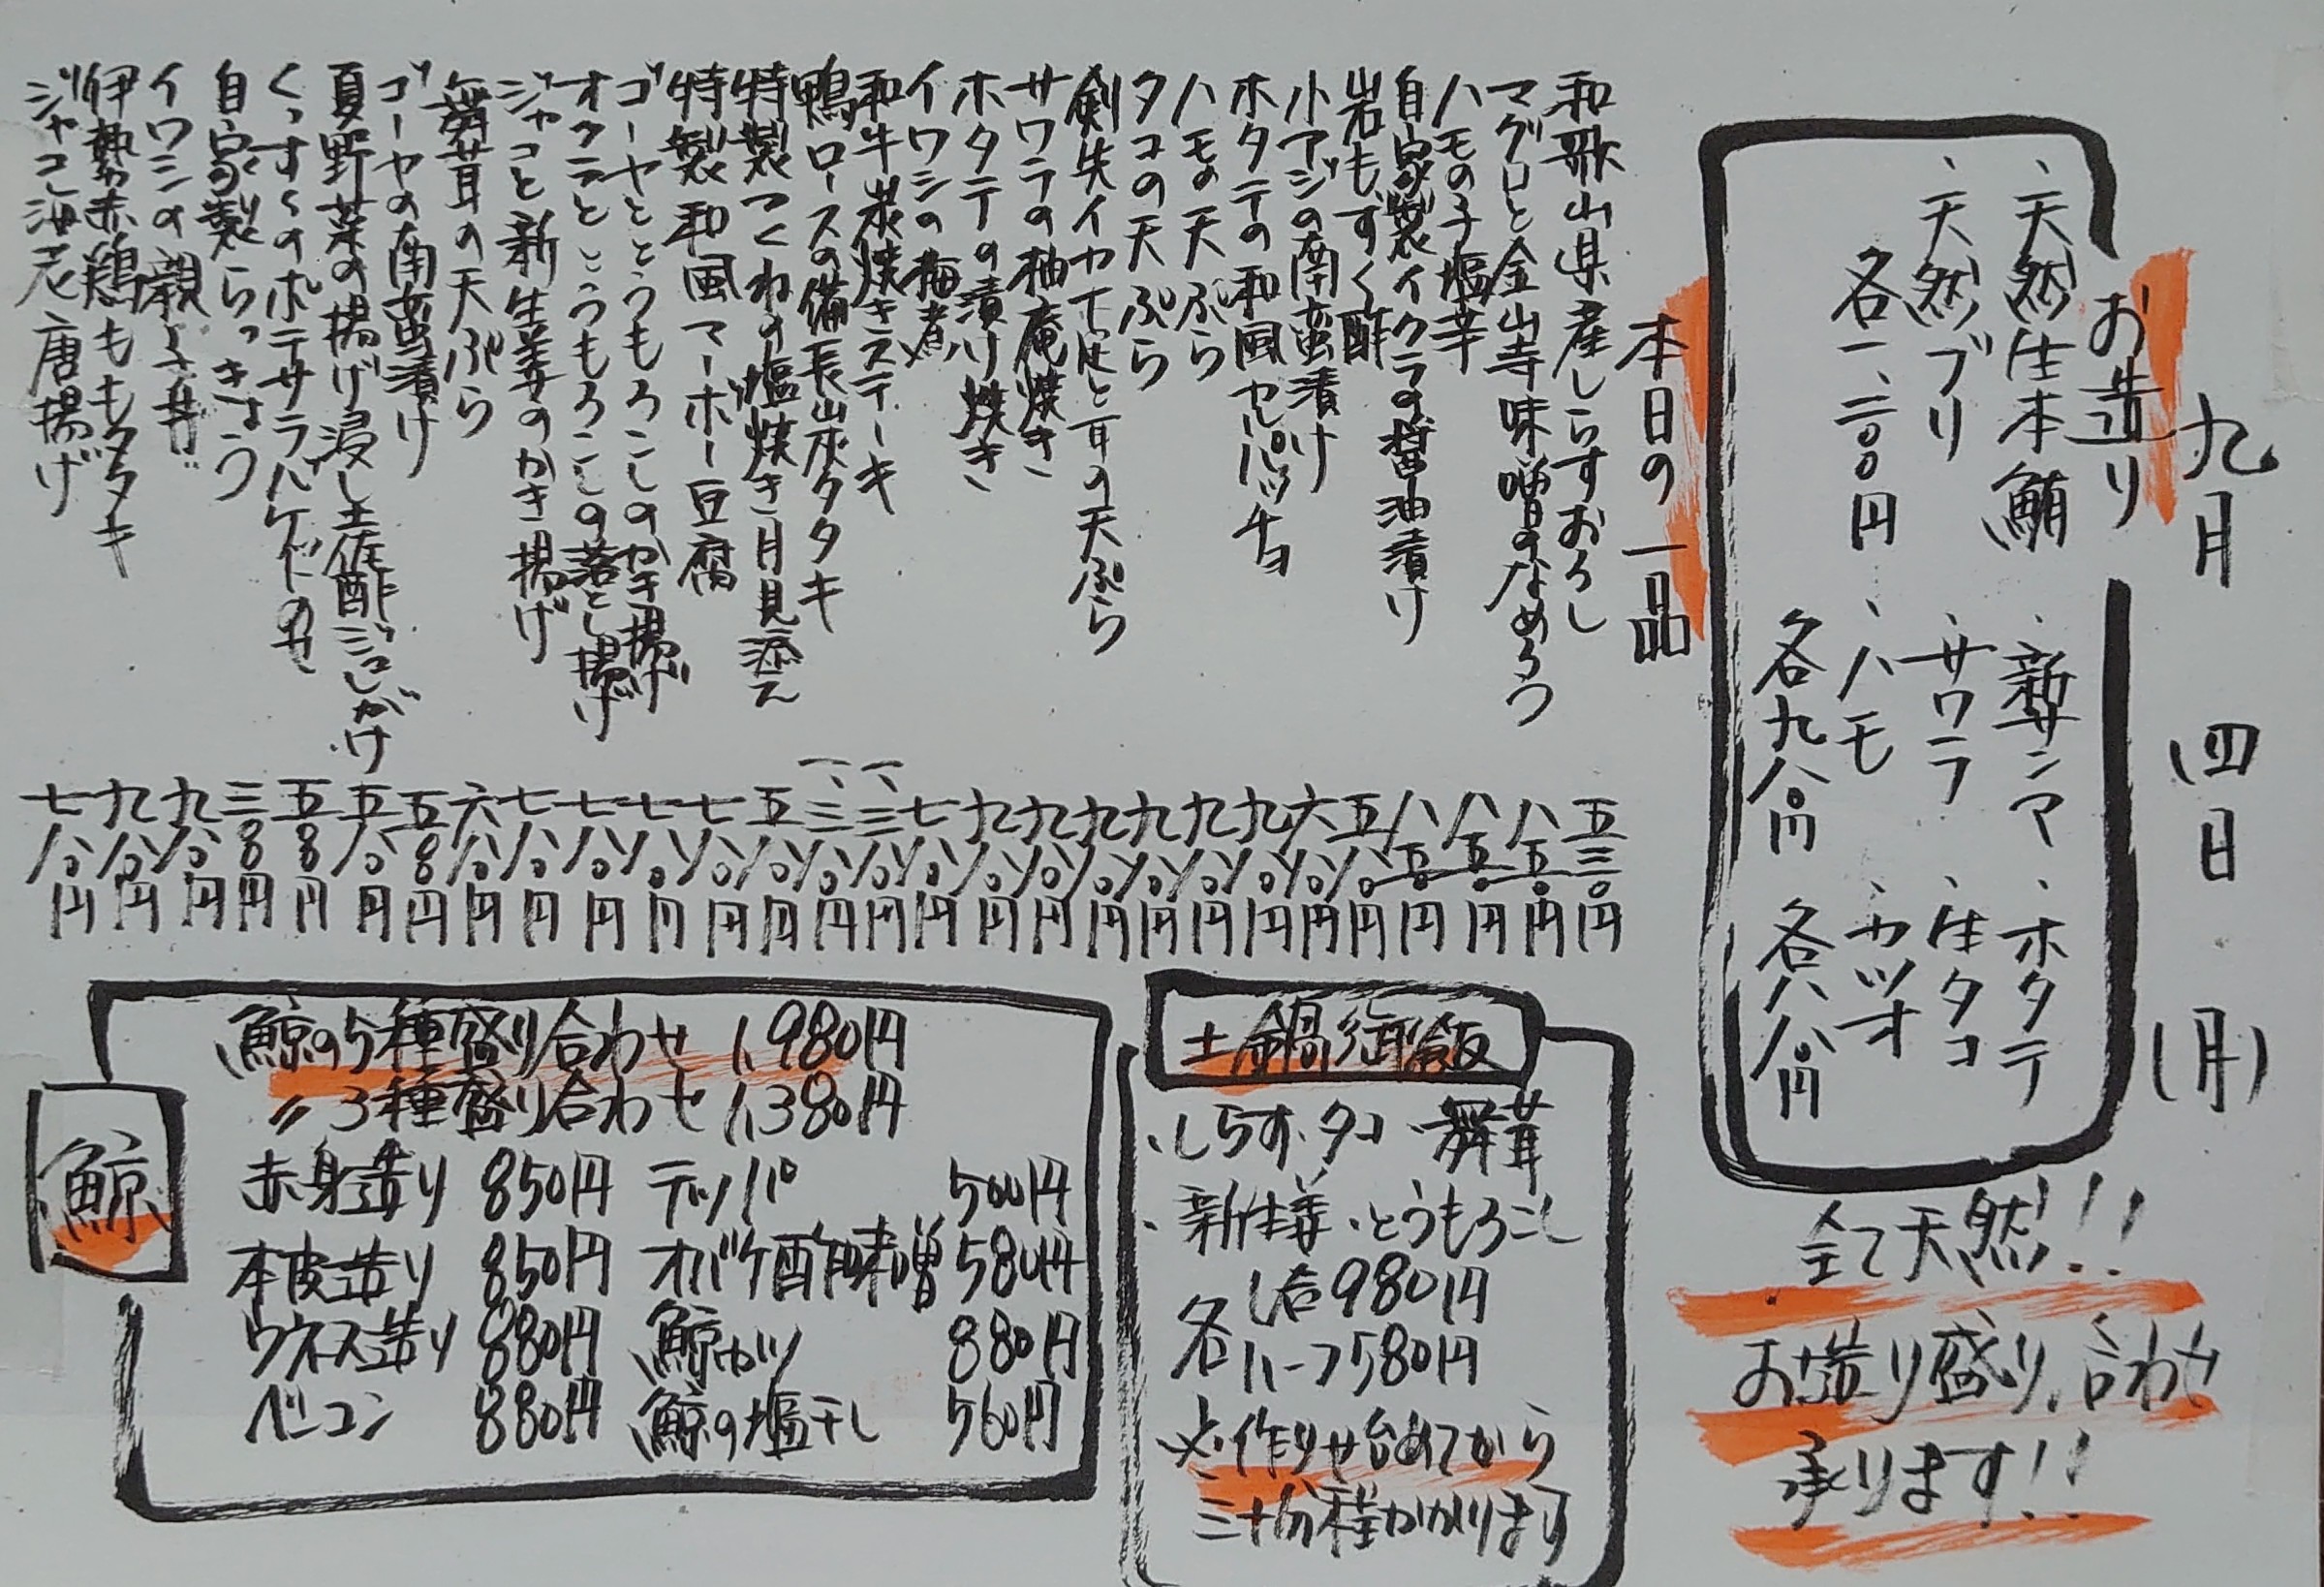 九月 四日 (月)
お造り
、天然生本鮪 、新サンマ 、ホタテ
、天然ブリ 、サワラ 、生タコ
各一、二〇〇円 、ハモ 、カツオ
各九八〇円 各八八〇円
全て天然!!
お造り盛り合わせ
承ります!!
本日の一品
和歌山県産しらすおろし 五三〇円
マグロと金山寺味噌のなめろう 八五〇円
ハモの子塩辛 八五〇円
自家製イクラの醤油漬け 八五〇円
岩もずく酢 五八〇円
小アジの南蛮漬け 六八〇円
ホタテの和風カルパッチョ 九八〇円
ハモの天ぷら 九八〇円
タコの天ぷら 九八〇円
剣先イカ下足と耳の天ぷら 九八〇円
サワラの柚庵焼き 九八〇円
ホタテの漬け焼き 九八〇円
イワシの梅煮 七八〇円
和牛炭焼きステーキ 一、三八〇円
鴨ロースの備長炭タタキ 一、三八〇円
特製つくねの塩焼き月見添え 五八〇円
特製和風マーボー豆腐 七八〇円
ゴーヤととうもろこしのかき揚げ 七八〇円
オクラととうもろこしの落とし揚げ 七八〇円
ジャコと新生姜のかき揚げ 七八〇円
舞茸の天ぷら 六八〇円
ゴーヤの南蛮漬け 五〇〇円
夏野菜の揚げ浸し土佐酢ジュレがけ 五八〇円
くっすくのポテサラバケットのせ 五〇〇円
自家製らっきょう 三〇〇円
イワシの親子丼 九八〇円
伊勢赤鶏ももタタキ 九八〇円
ジャコ海老唐揚げ 七八〇円
土鍋御飯
、しらす、タコ、舞茸
、新生姜、とうもろこし
各1合980円
各ハーフ580円
※作りせ始めてから
三十分程かかります
鯨
鯨の5種盛り合わせ 1,980円
〃3種盛り合わせ 1,380円
赤身造り 850円 テッパ 500円
本皮造り 850円 オバケ酢味噌 580円
ウネス造り 880円 鯨カツ 880円
ベーコン 880円 鯨の塩干し 560円